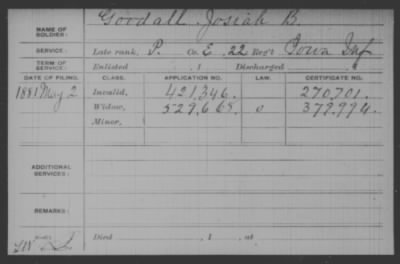 Goodall, Josiah B.
NAME OF SOLDIER:
SERVICE: Late rank, P. Co. E, 22 Reg't Iowa Inf
TERM OF SERVICE: Enlisted , 1 Discharged , 1
DATE OF FILING. CLASS. APPLICATION NO. LAW. CERTIFICATE NO.
1881 May 2 Invalid, 421,346. 270,701.
Widow, 529,668. 379,994.
Minor,
ADDITIONAL SERVICES:
REMARKS:
Died , 1 , at